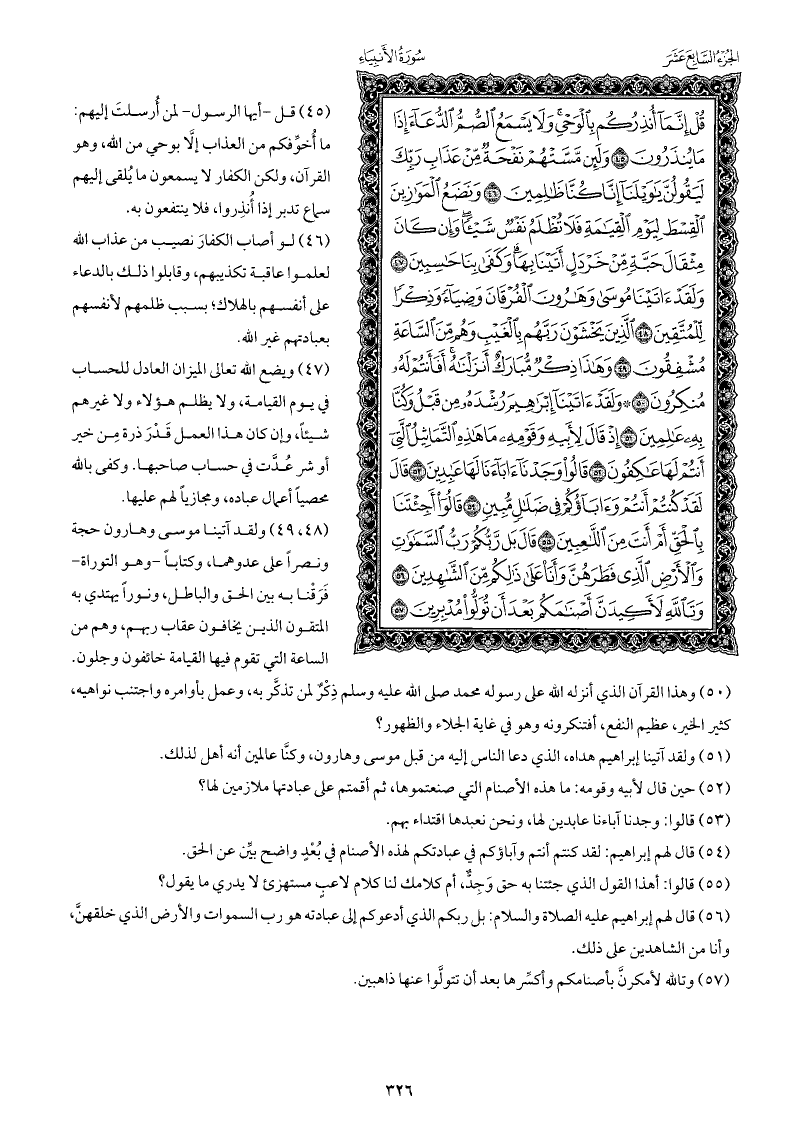 الجزء السابع عشر
سورة الأنبياء
قُلْ إِنَّمَآ أُنذِرُكُم بِٱلْوَحْىِ ۚ وَلَا يَسْمَعُ ٱلصُّمُّ ٱلدُّعَآءَ إِذَا
مَا يُنذَرُونَ ٤٥ وَلَئِن مَّسَّتْهُمْ نَفْحَةٌ مِّنْ عَذَابِ رَبِّكَ
لَيَقُولُنَّ يَٰوَيْلَنَآ إِنَّا كُنَّا ظَٰلِمِينَ ٤٦ وَنَضَعُ ٱلْمَوَٰزِينَ
ٱلْقِسْطَ لِيَوْمِ ٱلْقِيَٰمَةِ فَلَا تُظْلَمُ نَفْسٌ شَيْـًٔا ۖ وَإِن كَانَ
مِثْقَالَ حَبَّةٍ مِّنْ خَرْدَلٍ أَتَيْنَا بِهَا ۗ وَكَفَىٰ بِنَا حَٰسِبِينَ ٤٧
وَلَقَدْ ءَاتَيْنَا مُوسَىٰ وَهَٰرُونَ ٱلْفُرْقَانَ وَضِيَآءً وَذِكْرًا
لِّلْمُتَّقِينَ ٤٨ ٱلَّذِينَ يَخْشَوْنَ رَبَّهُم بِٱلْغَيْبِ وَهُم مِّنَ ٱلسَّاعَةِ
مُشْفِقُونَ ٤٩ وَهَٰذَا ذِكْرٌ مُّبَارَكٌ أَنزَلْنَٰهُ ۚ أَفَأَنتُمْ لَهُۥ
مُنكِرُونَ ٥٠ ۞ وَلَقَدْ ءَاتَيْنَآ إِبْرَٰهِيمَ رُشْدَهُۥ مِن قَبْلُ وَكُنَّا
بِهِۦ عَٰلِمِينَ ٥١ إِذْ قَالَ لِأَبِيهِ وَقَوْمِهِۦ مَا هَٰذِهِ ٱلتَّمَاثِيلُ ٱلَّتِىٓ
أَنتُمْ لَهَا عَٰكِفُونَ ٥٢ قَالُوا۟ وَجَدْنَآ ءَابَآءَنَا لَهَا عَٰبِدِينَ ٥٣ قَالَ
لَقَدْ كُنتُمْ أَنتُمْ وَءَابَآؤُكُمْ فِى ضَلَٰلٍ مُّبِينٍ ٥٤ قَالُوٓا۟ أَجِئْتَنَا
بِٱلْحَقِّ أَمْ أَنتَ مِنَ ٱللَّٰعِبِينَ ٥٥ قَالَ بَل رَّبُّكُمْ رَبُّ ٱلسَّمَٰوَٰتِ
وَٱلْأَرْضِ ٱلَّذِى فَطَرَهُنَّ وَأَنَا۠ عَلَىٰ ذَٰلِكُم مِّنَ ٱلشَّٰهِدِينَ ٥٦
وَتَٱللَّهِ لَأَكِيدَنَّ أَصْنَٰمَكُم بَعْدَ أَن تُوَلُّوا۟ مُدْبِرِينَ ٥٧
(٤٥) قل -أيها الرسول- لمن أُرسلتَ إليهم:
ما أُخوِّفكم من العذاب إلَّا بوحي من الله، وهو
القرآن، ولكن الكفار لا يسمعون ما يُلقى إليهم
سماع تدبر إذا أُنذِروا، فلا ينتفعون به.
(٤٦) لـو أصاب الكفارَ نصيب من عذاب الله
لعلموا عاقبة تكذيبهم، وقابلوا ذلك بالدعاء
على أنفسهم بالهلاك؛ بسبب ظلمهم لأنفسهم
بعبادتهم غير الله.
(٤٧) ويضع الله تعالى الميزان العادل للحساب
في يوم القيامة، ولا يظلم هؤلاء ولا غيرهم
شيئاً، وإن كان هذا العمل قَدْرَ ذرة مِن خير
أو شر عُدَّت في حساب صاحبها. وكفى بالله
محصياً أعمال عباده، ومجازياً لهم عليها.
(٤٨، ٤٩) ولقد آتينا موسى وهارون حجة
ونصراً على عدوهما، وكتاباً -وهو التوراة-
فَرَقْنا به بين الحق والباطل، ونوراً يهتدي به
المتقون الذين يخافون عقاب ربهم، وهم من
الساعة التي تقوم فيها القيامة خائفون وجلون.
(٥٠) وهذا القرآن الذي أنزله الله على رسوله محمد صلى الله عليه وسلم ذِكْرٌ لمن تذكَّر به، وعمل بأوامره واجتنب نواهيه،
كثير الخير، عظيم النفع، أفتنكرونه وهو في غاية الجلاء والظهور؟
(٥١) ولقد آتينا إبراهيم هداه، الذي دعا الناس إليه من قبل موسى وهارون، وكنَّا عالمين أنه أهل لذلك.
(٥٢) حين قال لأبيه وقومه: ما هذه الأصنام التي صنعتموها، ثم أقمتم على عبادتها ملازمين لها؟
(٥٣) قالوا: وجدنا آباءنا عابدين لها، ونحن نعبدها اقتداء بهم.
(٥٤) قال لهم إبراهيم: لقد كنتم أنتم وآباؤكم في عبادتكم لهذه الأصنام في بُعْدٍ واضح بيِّن عن الحق.
(٥٥) قالوا: أهذا القول الذي جئتنا به حق وَجِدٌّ، أم كلامك لنا كلام لاعبٍ مستهزئ لا يدري ما يقول؟
(٥٦) قال لهم إبراهيم عليه الصلاة والسلام: بل ربكم الذي أدعوكم إلى عبادته هو رب السموات والأرض الذي خلقهنَّ،
وأنا من الشاهدين على ذلك.
(٥٧) وتالله لأمكرنَّ بأصنامكم وأكسِّرها بعد أن تتولَّوا عنها ذاهبين.
٣٢٦